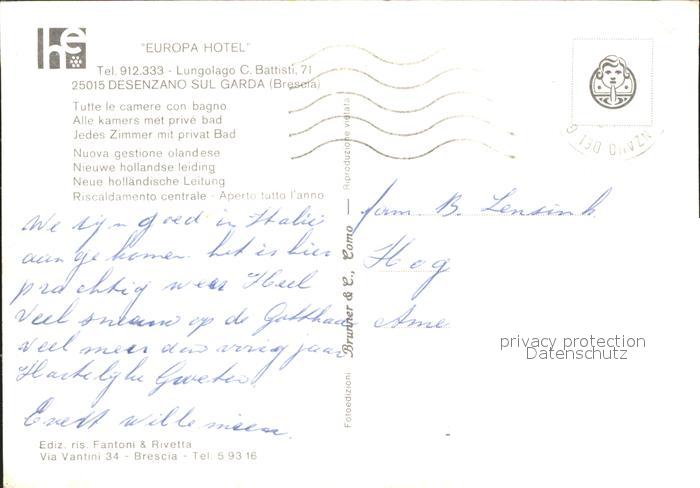 he
"EUROPA HOTEL"
Tel. 912.333 - Lungolago C. Battisti, 71
25015 DESENZANO SUL GARDA (Brescia)
Tutte le camere con bagno
Alle kamers met privé bad
Jedes Zimmer mit privat Bad
Nuova gestione olandese
Nieuwe hollandse leiding
Neue holländische Leitung
Riscaldamento centrale - Aperto tutto l'anno
We zijn goed in Italië
aangekomen. het is hier
prachtig weer Heel
veel sneeuw op de Gotthard
veel meer dan vorig jaar
Hartelijke Groeten
Evert Willemsen.
Ediz. ris. Fantoni & Rivetta
Via Vantini 34 - Brescia - Tel: 5 93 16
Fotoedizioni Brunner & C., Como — Riproduzione vietata
NZANO DEL G
fam. B. Lensink
Hog
Ame
privacy protection
Datenschutz